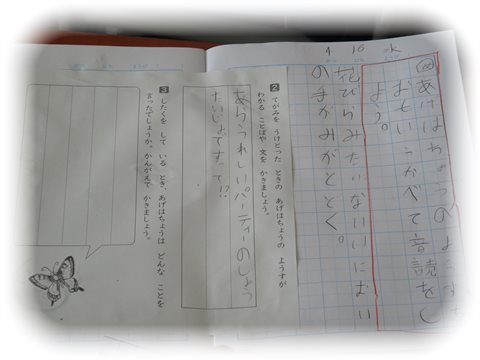 あげはちょうのようすを
おもいうかべて音読をし
よう。
4 16
花びらみたいないいにおい
の手がみがとどく。
2 てがみを うけとった ときの あげはちょうの ようすが
わかる ことばや 文を かきましょう。
あら、うれしい。パーティーのしょう
たいじょですって!?
3 したくを して いる とき、あげはちょうは どんな ことを
言ったでしょうか。かんがえて かきましょう。